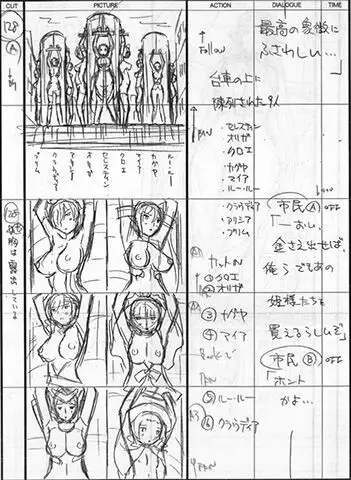 CUT
PICTURE
ACTION
DIALOGUE
TIME
128
A
Follow
最高の象徴に
ふさわしい…」
台車の上に
陳列された9人
PAN
・セレスティン
・オリガ
・クロエ
・カグヤ
・マイア
・ルー・ルー
・クラウディア
・アリシア
・プリム
プリム
クラウディア
マイア
オリガ
セレスティン
クロエ
カグヤ
ルー・ルー
胸は露出している
市民 A OFF
「一おい、
金さえ出せば、
俺らでもあの
姫様たちを
買えるらしいぞ」
市民 B OFF
「ホント
かよ…
カットIN
① クロエ
② オリガ
③ カグヤ
④ マイア
Bookで
PAN
⑤ ルー・ルー
⑥ クラウディア
PAN